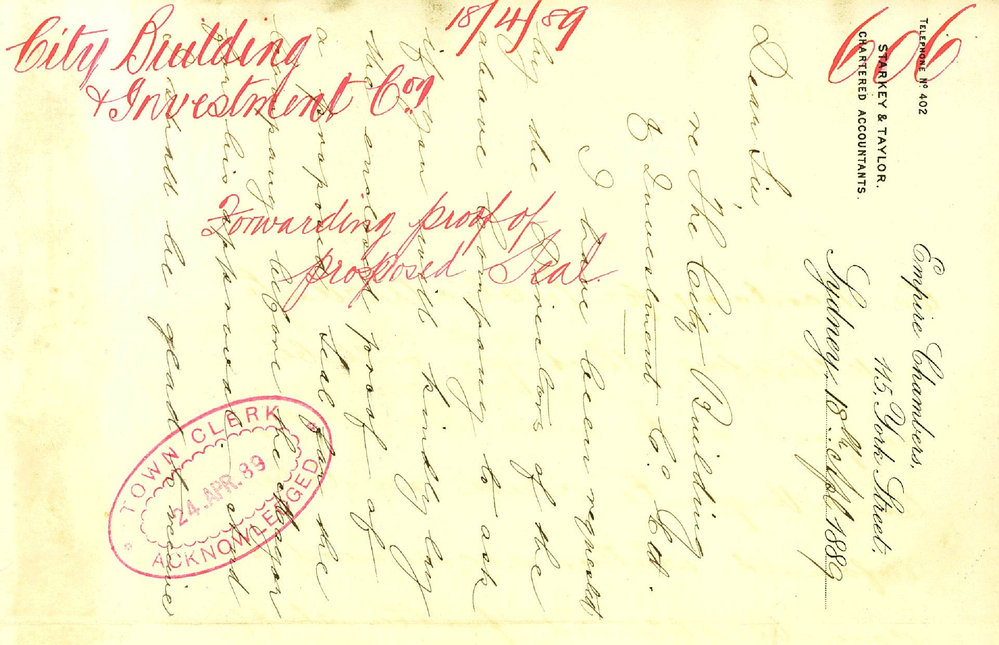 City Building
& Investment Coy
18/4/89
606
Forwarding proof of
proposed Seal
TELEPHONE Nº 402
STARKEY & TAYLOR.
CHARTERED ACCOUNTANTS.
Empire Chambers,
115, York Street,
Sydney, 18th Apl. 1889
Dear Sir,
re The City Building
& Investment Co Ltd.
I have been requested
by the Directors of the
above Company to ask
if you will kindly lay
the enclosed proof of
a proposed Seal for the
Company before the Mayor
for his approval, and
shall be glad to receive
TOWN CLERK
24.APR.89
ACKNOWLENGED